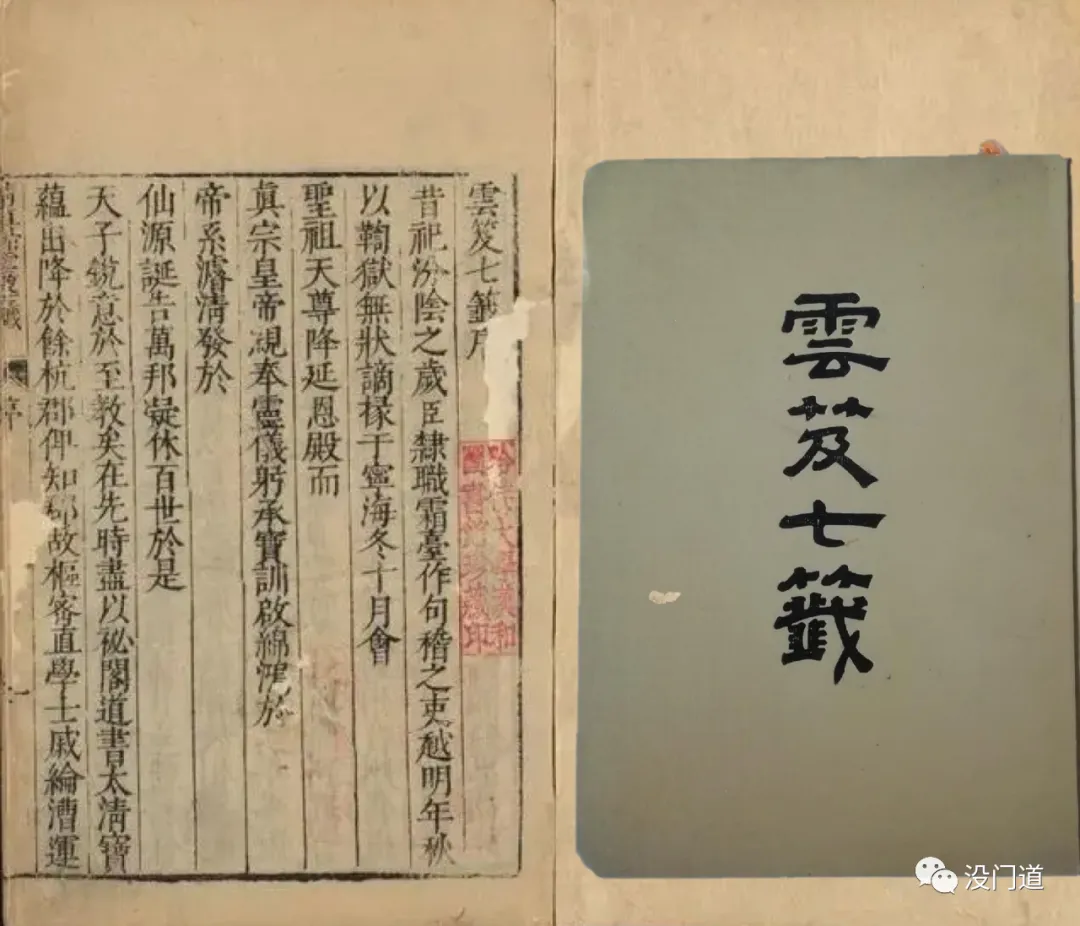 雲笈七籤序
昔祀汾陰之歲臣隸職霜臺作句稽之吏越明年秋
以鞫獄無狀謫掾于寧海冬十月會
聖祖天尊降延恩殿而
真宗皇帝親奉靈儀躬承寶訓啟綿鴻於
帝系濬清發於
仙源誕告萬邦凝休百世於是
天子銳意於至教矣在先時盡以祕閣道書太清寶
蘊出降於餘杭郡俾知郡故樞密直學士戚綸漕運
序
哈佛大學漢和
圖書館珍藏印
雲笈七籤
没门道